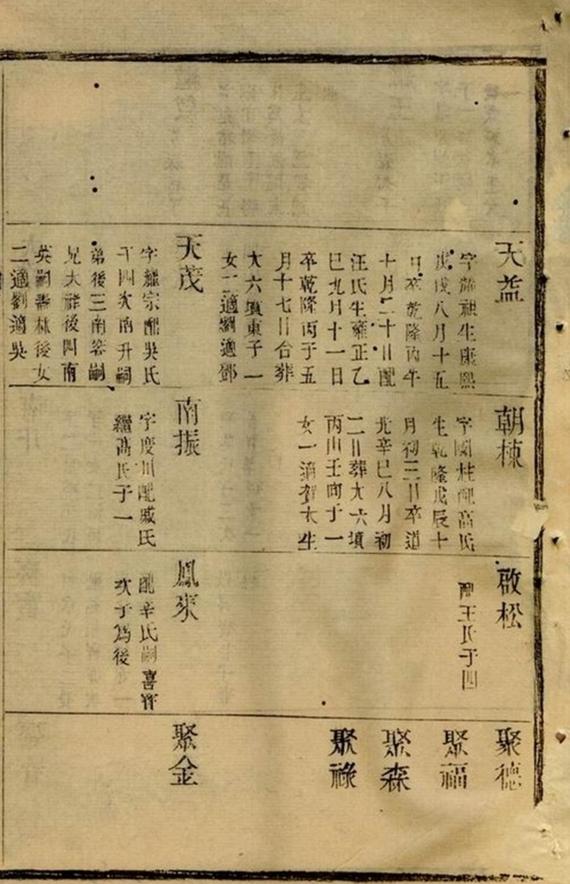 天益
字 生康熙
戊戌八月十五
日卒乾隆丙午
十月二十日配
汪氏生雍正乙
巳九月十一日
卒乾隆丙子五
月十七日合葬
大六塤東子一
女二適劉適鄧
天茂
字繼宗配吳氏
子四次南升嗣
弟後三南 嗣
兄天 後四南
英嗣 林後女
二適劉適吳
朝棟
字國柱配高氏
生乾隆戊辰十
月初三日卒道
光辛巳八月初
二日葬大六塤
丙山壬向子一
女一適賀大生
南振
字慶川配戚氏
繼高氏子一
啟松
配王氏子四
鳳來
配辛氏嗣喜
次子爲後
聚德
聚福
聚森
聚祿
聚金